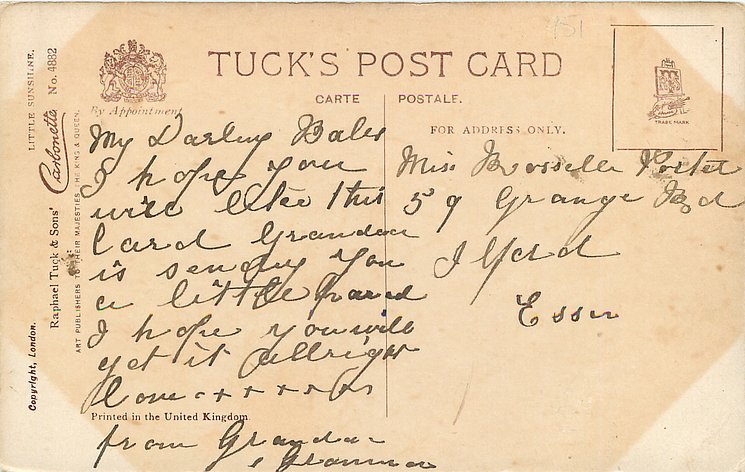 451
TUCK'S POST CARD
CARTE POSTALE.
FOR ADDRESS ONLY.
By Appointment
TRADE MARK
LITTLE SUNSHINE.
Carbonette No. 4882
Raphael Tuck & Sons'
ART PUBLISHERS TO THEIR MAJESTIES THE KING & QUEEN.
Copyright, London.
My Darling
I hope you
will like this
card Grandda
is sending you
a little
I hope you will
get it allright
love + + + + +
Printed in the United Kingdom.
from Grandda
& Gramma
Miss
59 Grange Rd
Ilford
Essex